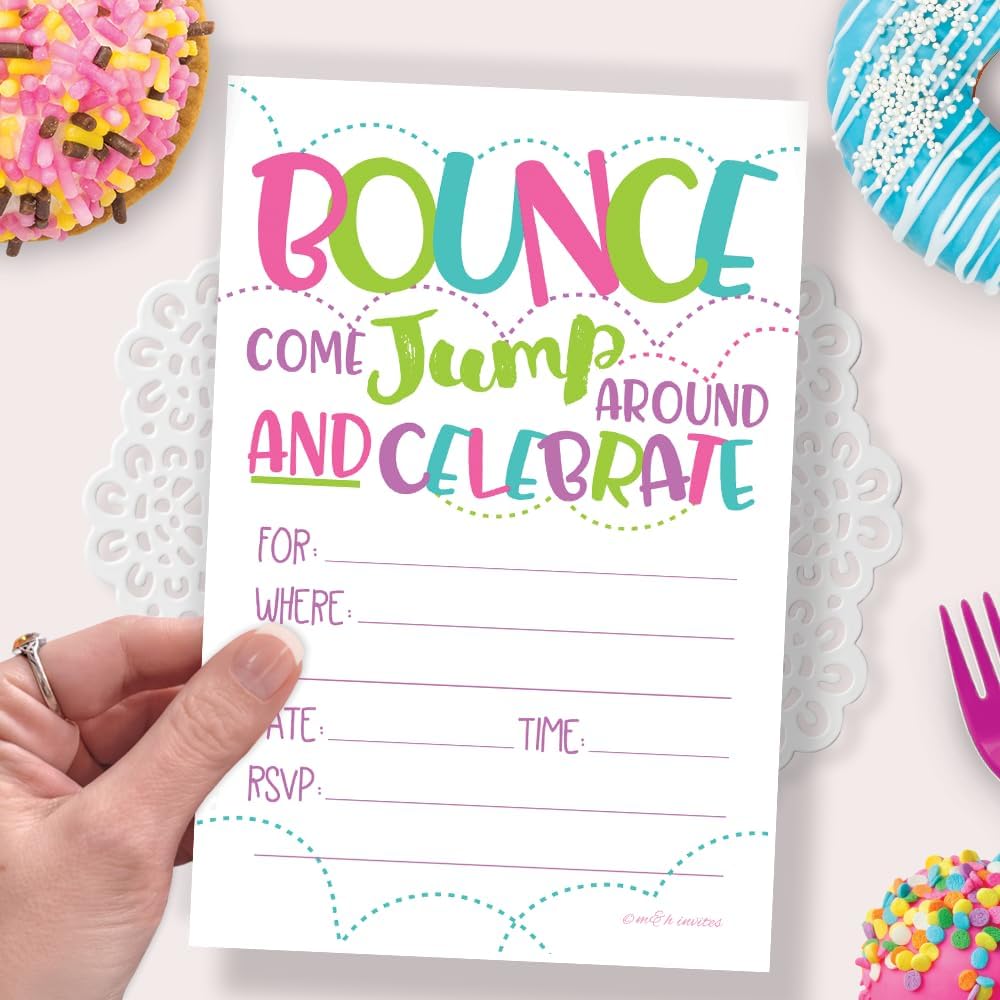 BOUNCE
COME Jump AROUND
AND CELEBRATE
FOR:
WHERE:
ATE: TIME:
RSVP:
©m&h invites